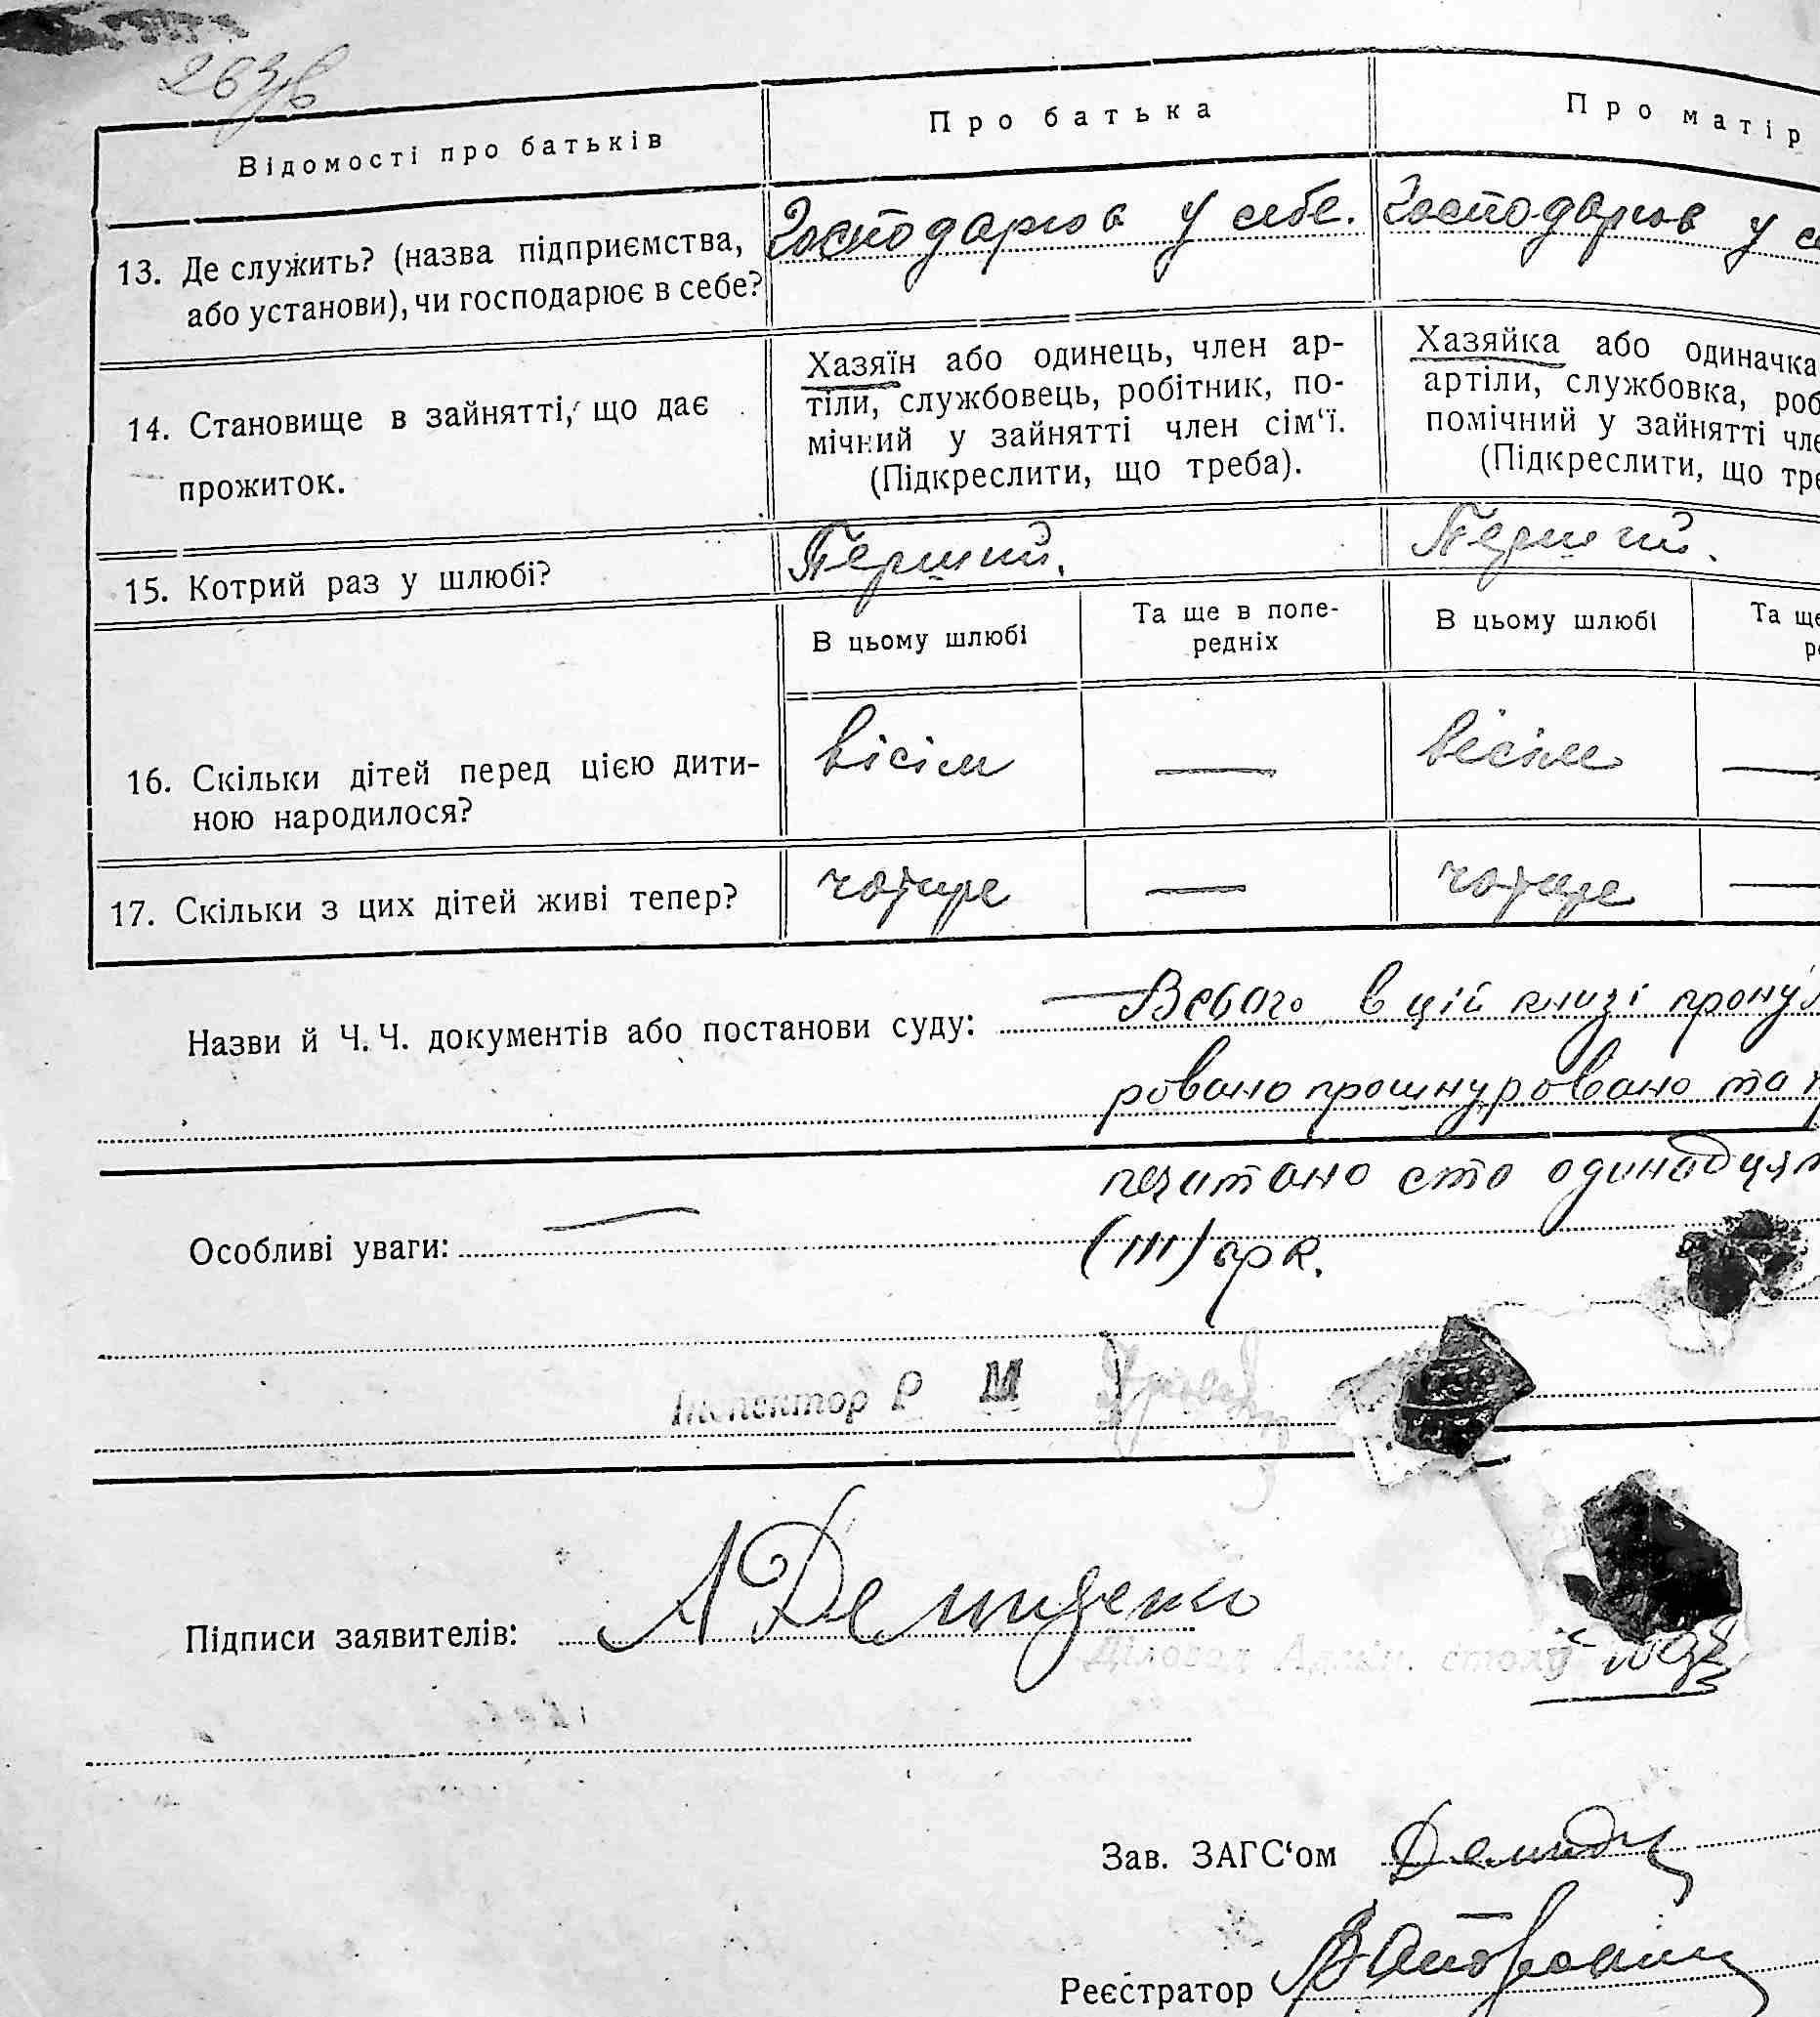 263зв
Відомості про батьків
Про батька
Про матір
13. Де служить? (назва підприємства,
або установи), чи господарює в себе?
Господарює у себе.
Господарює у се
14. Становище в зайнятті, що дає
прожиток.
Хазяїн або одинець, член ар-
тіли, службовець, робітник, по-
мічний у зайнятті член сім‘ї.
(Підкреслити, що треба).
Хазяйка або одиначка
артіли, службовка, роб
помічний у зайнятті чле
(Підкреслити, що тре
15. Котрий раз у шлюбі?
Перший.
Перший.
В цьому шлюбі
Та ще в попе-
редніх
В цьому шлюбі
Та ще
ре
16. Скільки дітей перед цією дити-
ною народилося?
вісім
—
вісім
—
17. Скільки з цих дітей живі тепер?
чотире
—
чотире
—
Назви й Ч. Ч. документів або постанови суду: — Всього в цій книзі прону
ровано прошнуровано та п
печатано сто одинадцят
(111) арк.
Особливі уваги: —
Інспектор Р М
Підписи заявителів: А Демиденко
Діловод Адмін. столу
Зав. ЗАГС‘ом
Реєстратор